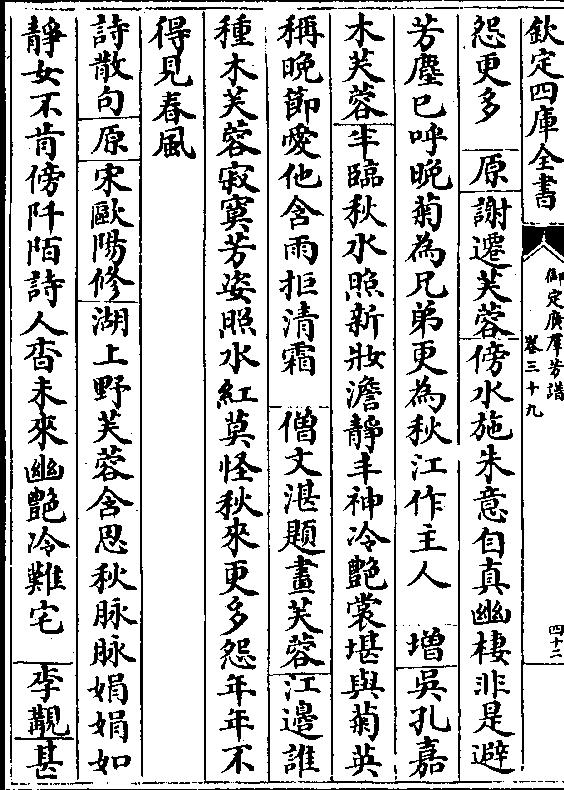 欽定四庫全書
御定廣羣芳譜
卷三十九
四十二
怨更多　原謝遷芙蓉傍水施朱意自真幽棲非是避
芳塵已呼晚菊為兄弟更為秋江作主人　增吳孔嘉
木芙蓉半臨秋水照新妝澹靜丰神冷艷裳堪與菊英
稱晚節愛他含雨拒清霜　僧文湛題畫芙蓉江邊誰
種木芙蓉寂寞芳姿照水紅莫怪秋來更多怨年年不
得見春風
詩散句原宋歐陽修湖上野芙蓉含思秋脉脉娟娟如
靜女不肯傍阡陌詩人杳未來幽艷冷難宅　李觀甚